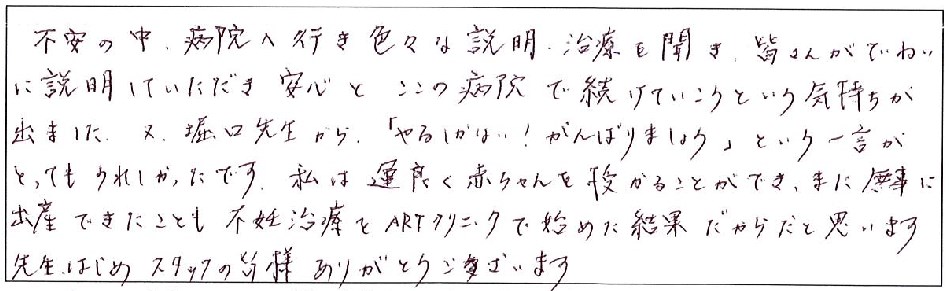 不安の中、病院へ行き色々な説明、治療を聞き、皆さんがていねい
に説明していただき安心とここの病院で続けていこうという気持ちが
出ました。又、堀口先生から、「やるしかない!がんばりましょう」という一言が
とってもうれしかったです。私は運良く赤ちゃんを授かることができ、また無事に
出産できたことも不妊治療をARTクリニックで始めた結果だからだと思います
先生はじめスタッフの皆様ありがとうございます